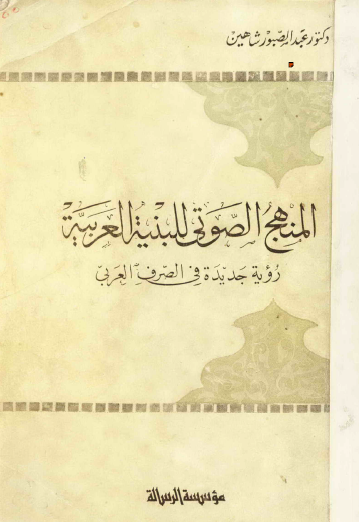 دكتور عبد الصبور شاهين
المنهج الصوتي للبنية العربية
رؤية جديدة في الصرف العربي
مؤسسة الرسالة